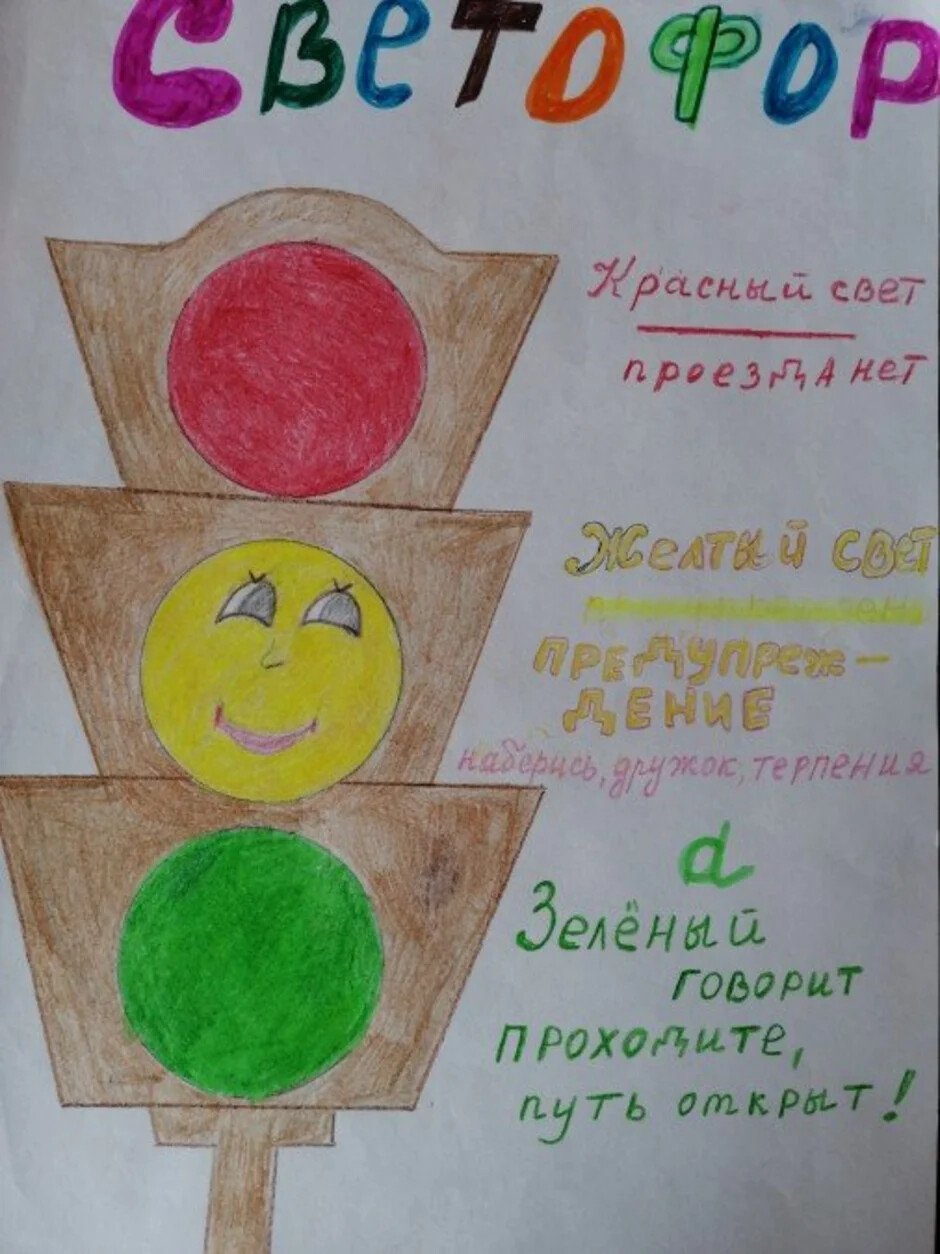 Светофор
Красный свет
проезда нет
Желтый свет
ПРЕДУПРЕЖ-
ДЕНИЕ
наберись, дружок, терпения
а
Зелёный
говорит
проходите,
путь открыт!